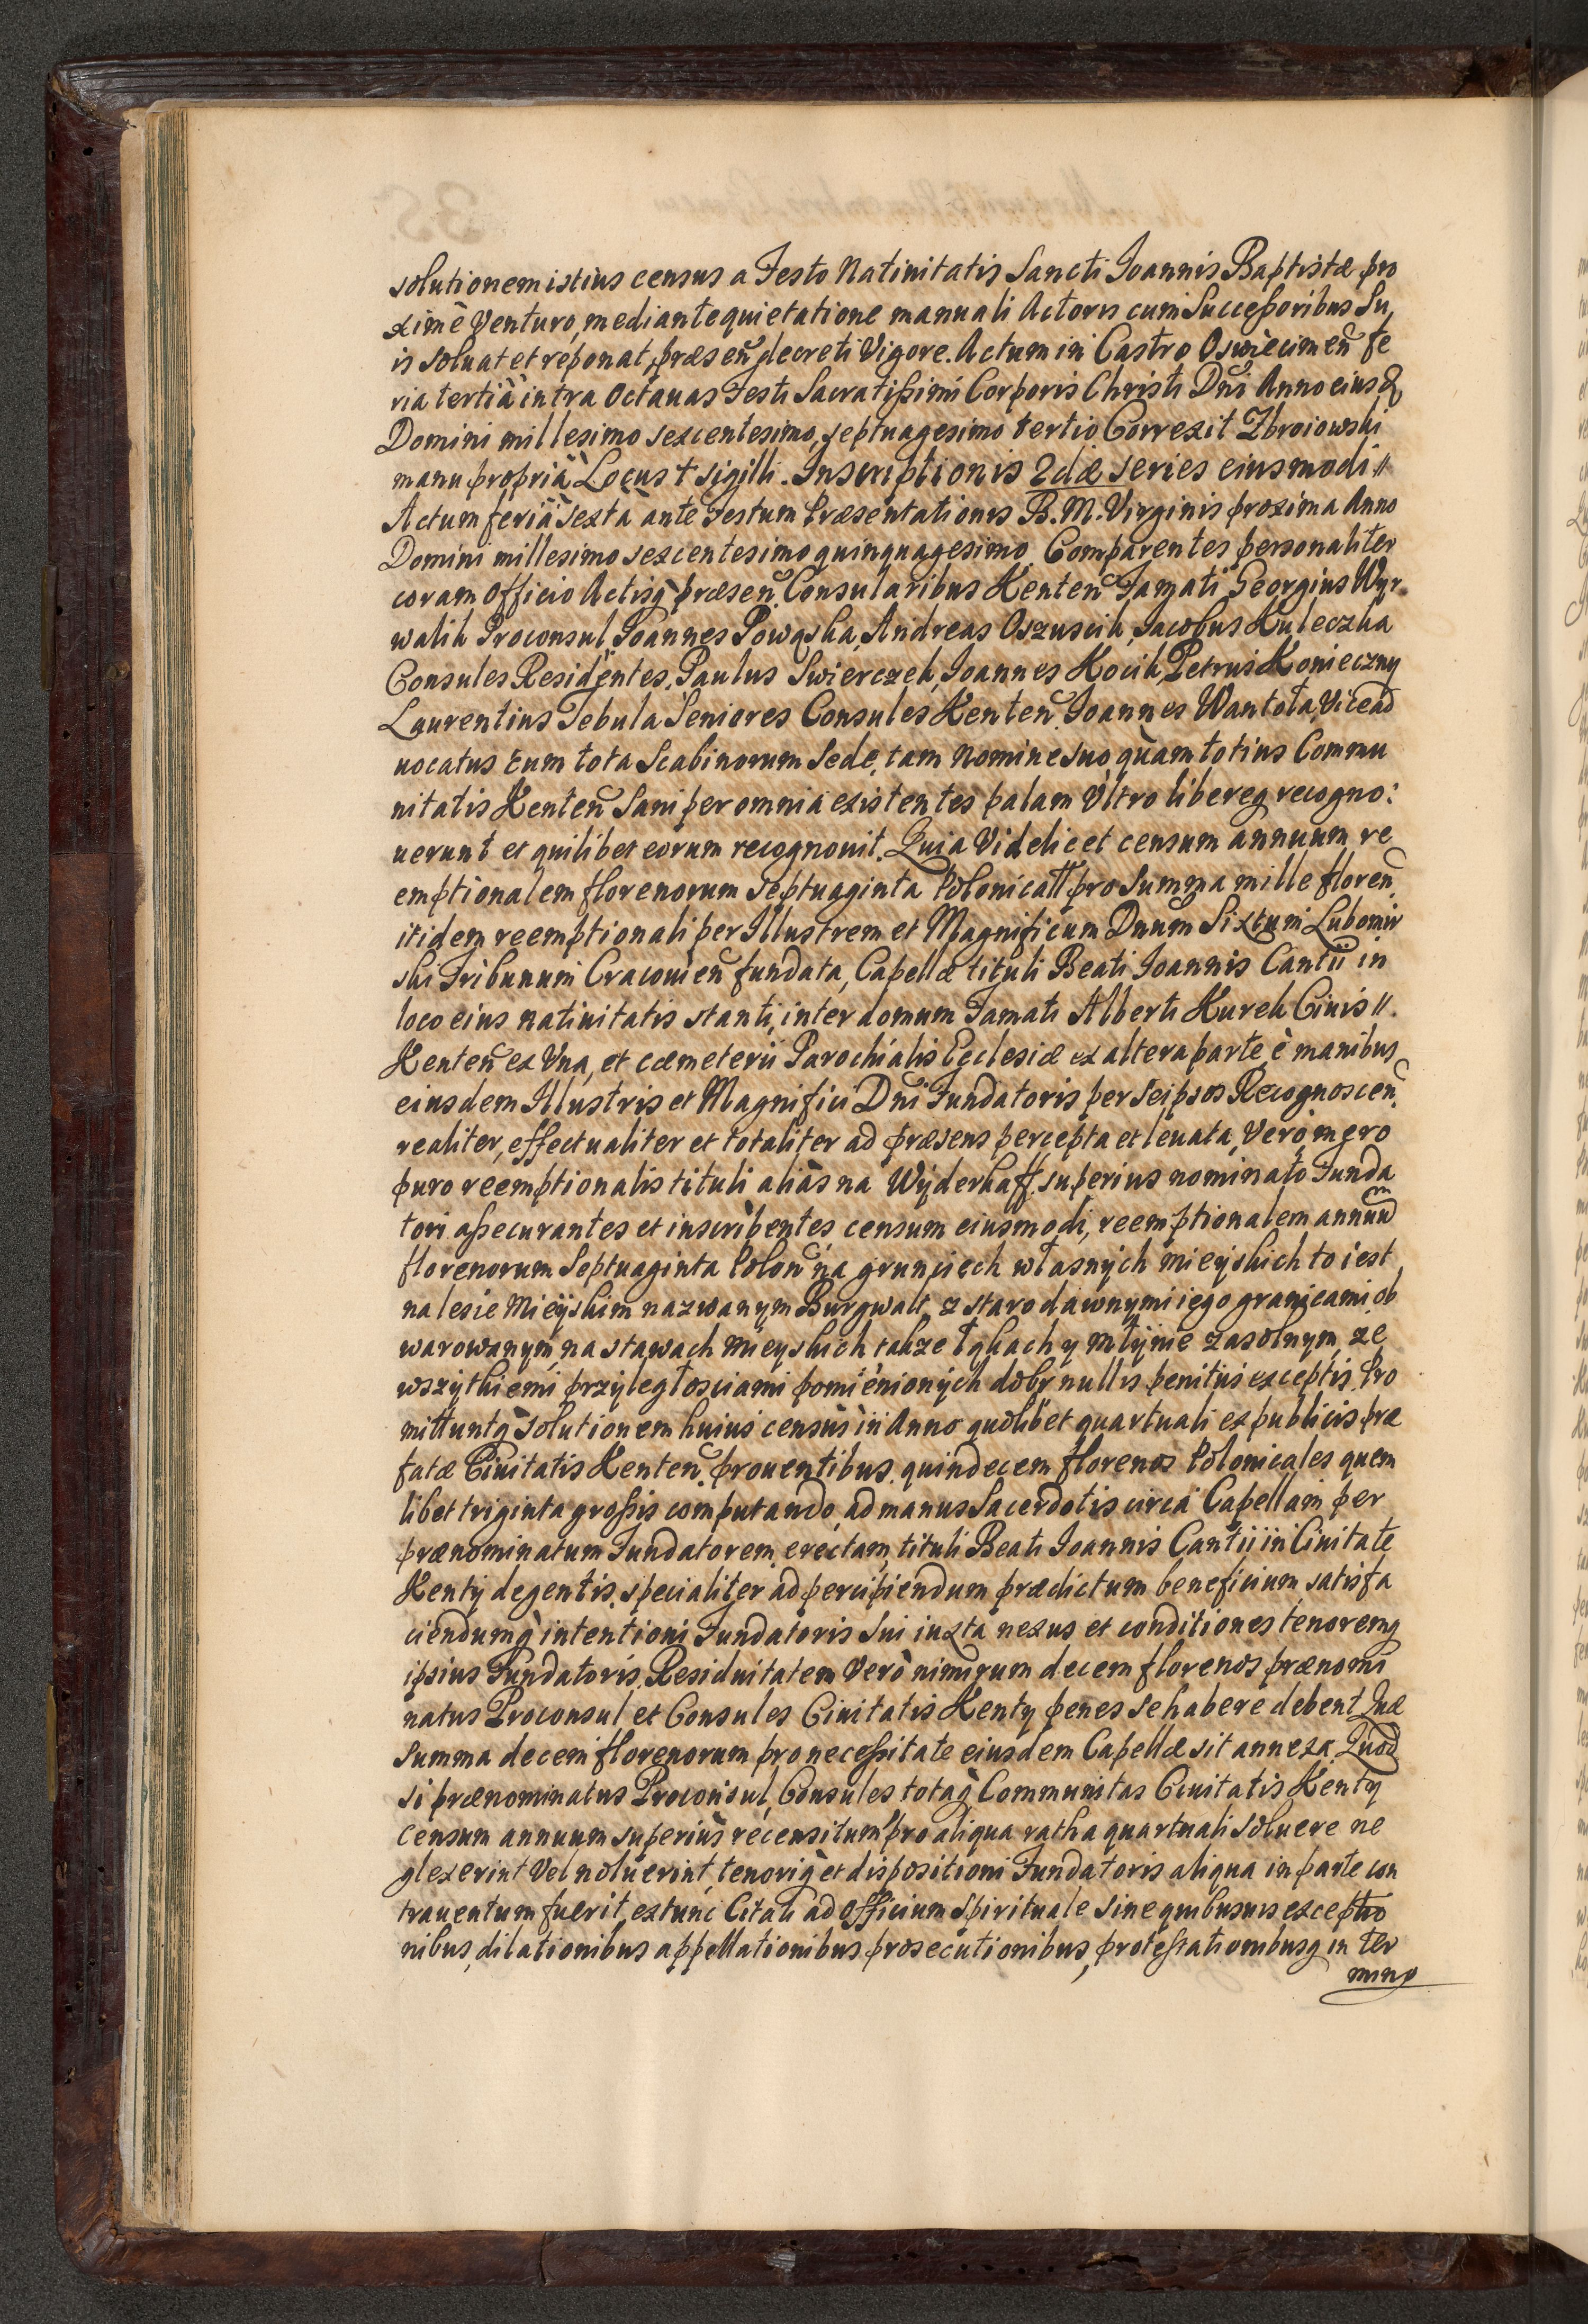 solutionem istius census a Festo Natiuitatis Sancti Ioannis Baptistæ pro
ximè Venturo, mediante quietatione manuali Actoris cum Successoribus Su,
is soluat et reponat, præsen decreti Vigore. Actum in Castro Oswiecimen fe
ria tertiâ intra Octauas Festi Sacratissimi Corporis Christi Dni Anno eius&
Domini millesimo sexcentesimo, septuagesimo tertio Correxit Zbroiowski
manu propriâ Locus + sigilli. Inscriptionis 2dæ series eiusmodi //
Actum feriâ sextâ ante Festum Præsentationis B. M. Virginis proxima Anno
Domini millesimo sexcentesimo quinquagesimo. Comparentes personaliter
coram Officio Actisq̀ præsen. Consularibus Kenten Famati Georgius Wyr
walik Proconsul Ioannes Powąska, Andreas Oszuscik, Iacobus Kuleczka
Consules Residentes, Paulus Swierczek, Ioannes Kocik, Petrus Konieczny
Laurentius Tebula Seniores Consules Kenten. Ioannes Wantola, Vicead
uocatus cum tota Scabinorum Sede, tam nomine suo quàm totius Commu
nitatis Kenten Sani per omnia existentes palam Vltro libereq recogno:
uerunt et quilibet eorum recognouit. Quia Videlicet censum annuum re
emptionalem florenorum septuaginta Polonicall pro Summa mille floren.
itidem reemptionali per Illustrem et Magnificum Dnum Sixtum Lubomir
ski Tribunum Cracouien fundata, Capellæ tituli Beati Ioannis Cantii in
loco eius natiuitatis stanti, inter domum Famati Alberti Kurek Ciuis //.
Kenten ex Vna, et cæmeterii Parochialis Ecclesiæ ex altera parte, è manibus
eiusdem Illustris et Magnifici Dni Fundatoris per seipsos Recognoscen.
realiter, effectualiter et totaliter ad præsens percepta et leuata, Verò mero
puro reemptionalis tituli aliàs na Wyderkaff. superius nominato Funda
tori assecurantes et inscribentes censum eiusmodi, reemptionalem annuum
florenorum Septuaginta Polon na grunciech własnych mieyskich to iest
na lesie Mieyskim nazwanym Burgwalt, z starodawnymi iego granicami ob
warowanym, na stawach mieyskich takze Łąkach y młynie zasolnym, ze
wszytkiemi przyległosciami pomienionych dobr nullis penitus exceptis. Pro
mittuntq̀ solutionem huius censùs in Anno quolibet quartuali ex publicis præ
fatæ Ciuitatis Kenten. prouentibus, quindecem florenos Polonicales quem
libet triginta grossis computando, ad manus Sacerdotis circa Capellam per
prænominatum Fundatorem, erectam, tituli Beati Ioannis Cantii in Ciuitate
Kenty degentis, specialiter ad percipiendum prædictum beneficium satisfa
ciendumq̀ intentioni Fundatoris Sui iuxta nexus et conditiones tenoremq
ipsius Fundatoris. Residuitatem Verò nimirum decem florenos prænomi
natus Proconsul et Consules Ciuitatis Kenty penes se habere debent Quæ
summa decem florenorum pro necessitate eiusdem Capellæ sit annexa. Quod
si prænominatus Proconsul, Consules totaq̀ Communitas Ciuitatis Kenty
censum annuum superiùs recensitum pro aliqua ratha quartuali soluere ne
glexerint Vel noluerint, tenoriq̀ et dispositioni Fundatoris aliqua in parte con
trauentum fuerit, extunc Citati ad Officium Spirituale sine quibusuis exceptio
nibus, dilationibus appellationibus prosecutionibus, protestationibusq in ter
mino